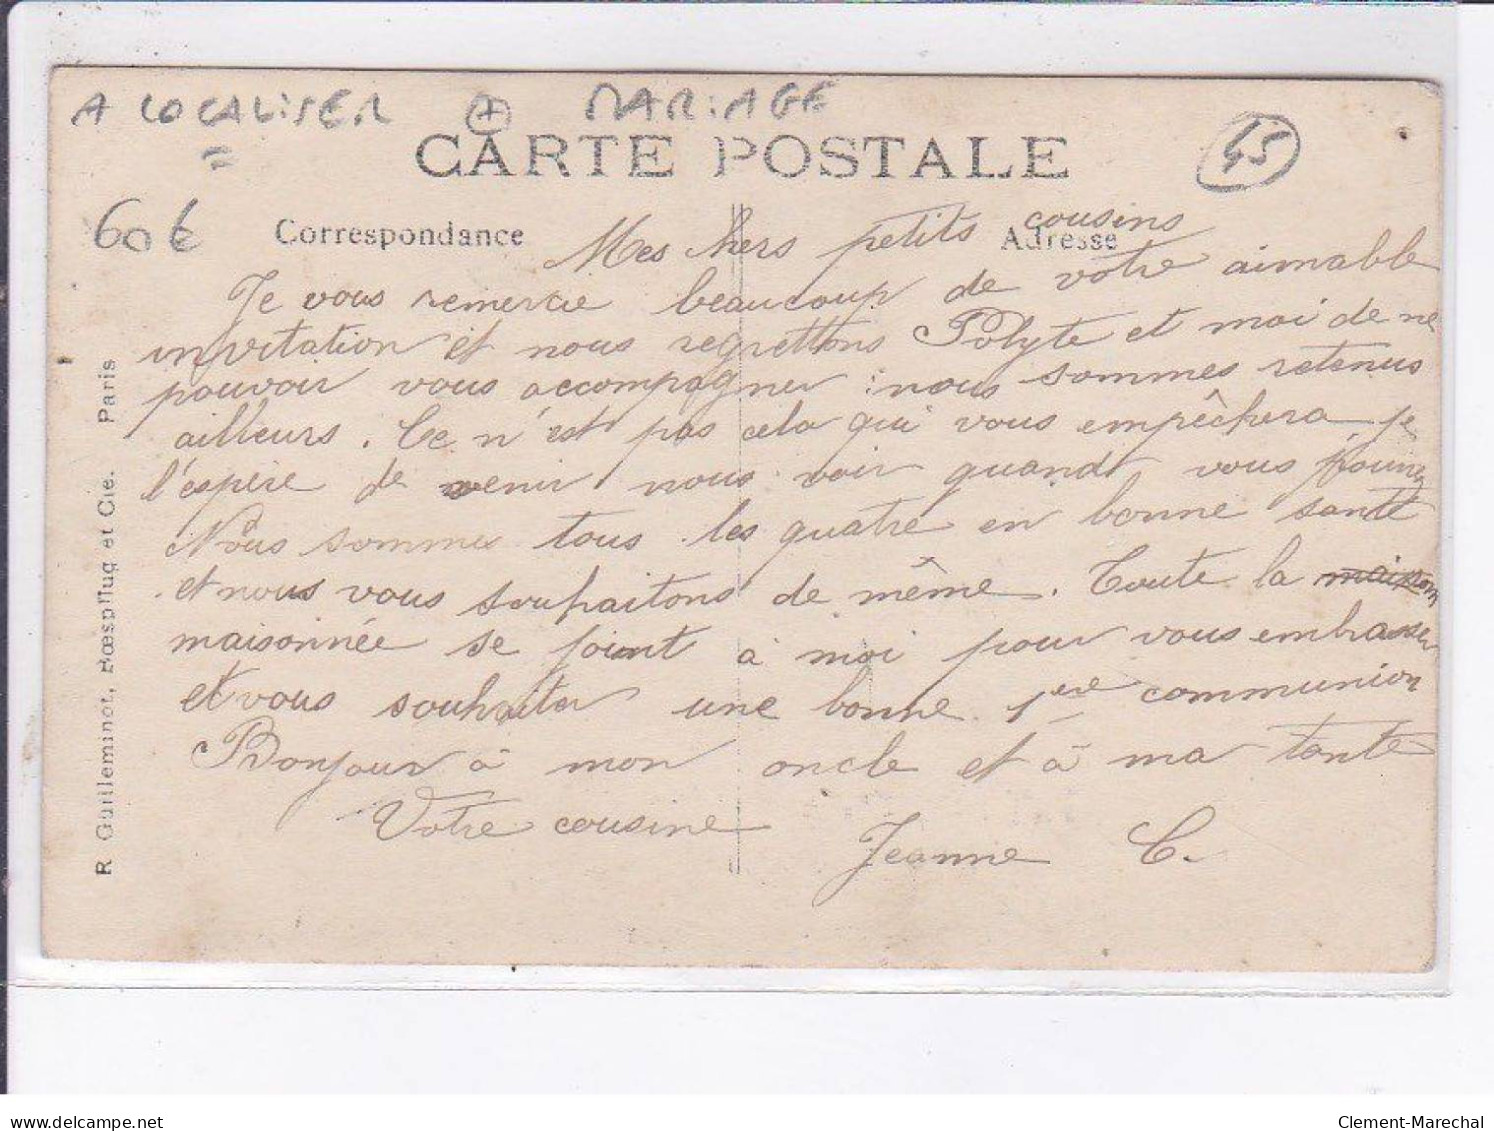 A LOCALISER + MARIAGE
CARTE POSTALE
45
60€
Correspondance
Adresse
Mes chers petits cousins
Je vous remercie beaucoup de votre aimable
invitation et nous regrettons Polyte et moi de ne
pouvoir vous accompagner : nous sommes retenus
ailleurs. Ce n'est pas cela qui vous empêchera je
l'espère de venir nous voir quand vous pourrez
Nous sommes tous les quatre en bonne santé
et nous vous souhaitons de même. Toute la maison
maisonnée se joint à moi pour vous embrasser
et vous souhaiter une bonne 1ère communion
Bonjour à mon oncle et à ma tante
Votre cousine
Jeanne C.
R. Guilleminot, Bœspflug et Cie. Paris
delcampe.net
Clement-Marechal